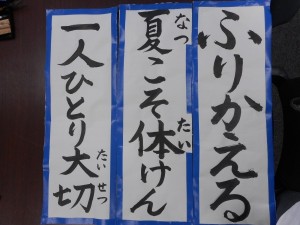 ふりかえる
夏こそ体けん
なつ
たい
一人ひとり大切
たい
せつ